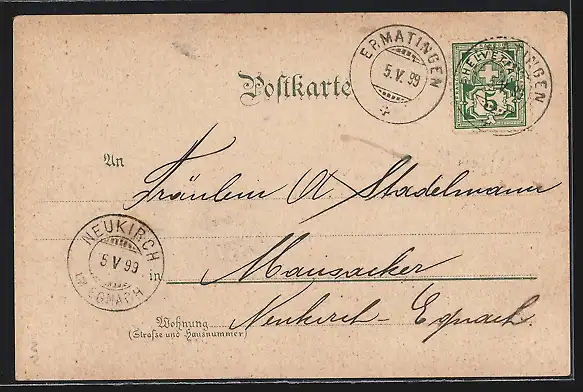 ERMATINGEN
5.V.99
HELVETIA
5
Postkarte
An
Fräulein A. Stadelmann
NEUKIRCH
5 V 99
EGNACH
in
Mausacker
Wohnung
(Strasse und Hausnummer)
Neukirch-Egnach.